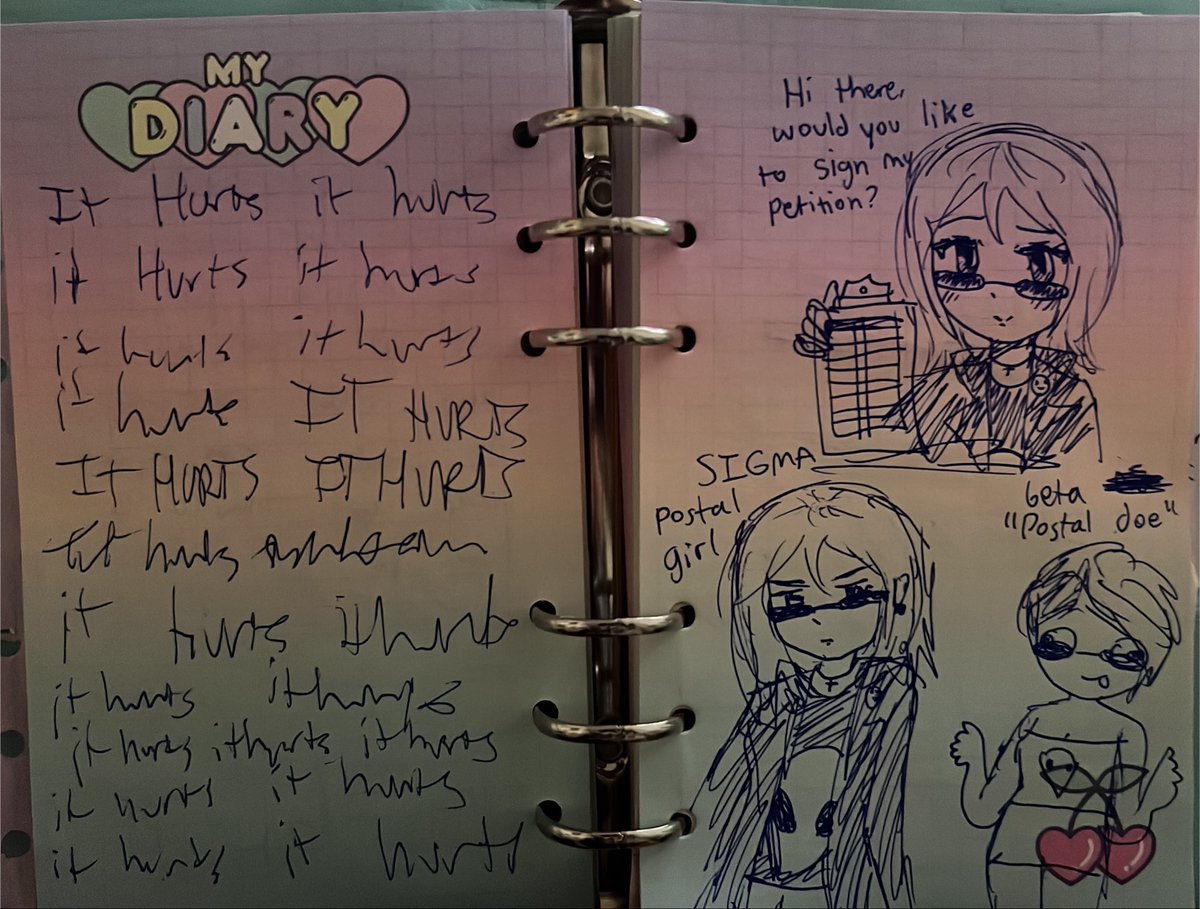 MY
DIARY
It Hurts it hurts
it Hurts it hurts
it hurts it hurts
it hurts IT HURTS
It HURTS IT HURTS
it hurts
it hurts it hurts
it hurts it hurts
it hurts it hurts it hurts
it hurts it hurts
it hurts it hurts
Hi there,
would you like
to sign my
petition?
SIGMA
postal
girl
beta
"Postal doe"